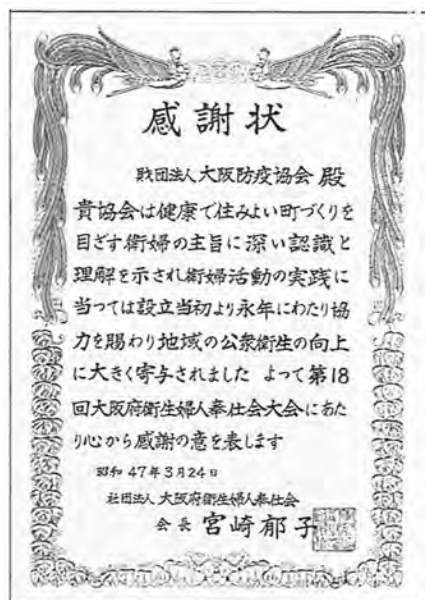 感謝状
財団法人大阪防疫協会 殿
貴協会は健康で住みよい町づくりを
目ざす衛婦の主旨に深い認識と
理解を示され衛婦活動の実践に
当っては設立当初より永年にわたり協
力を賜わり地域の公衆衛生の向上
に大きく寄与されました よって第18
回大阪府衛生婦人奉仕会大会にあた
り心から感謝の意を表します
昭和47年3月24日
社団法人 大阪府衛生婦人奉仕会
会長 宮崎郁子